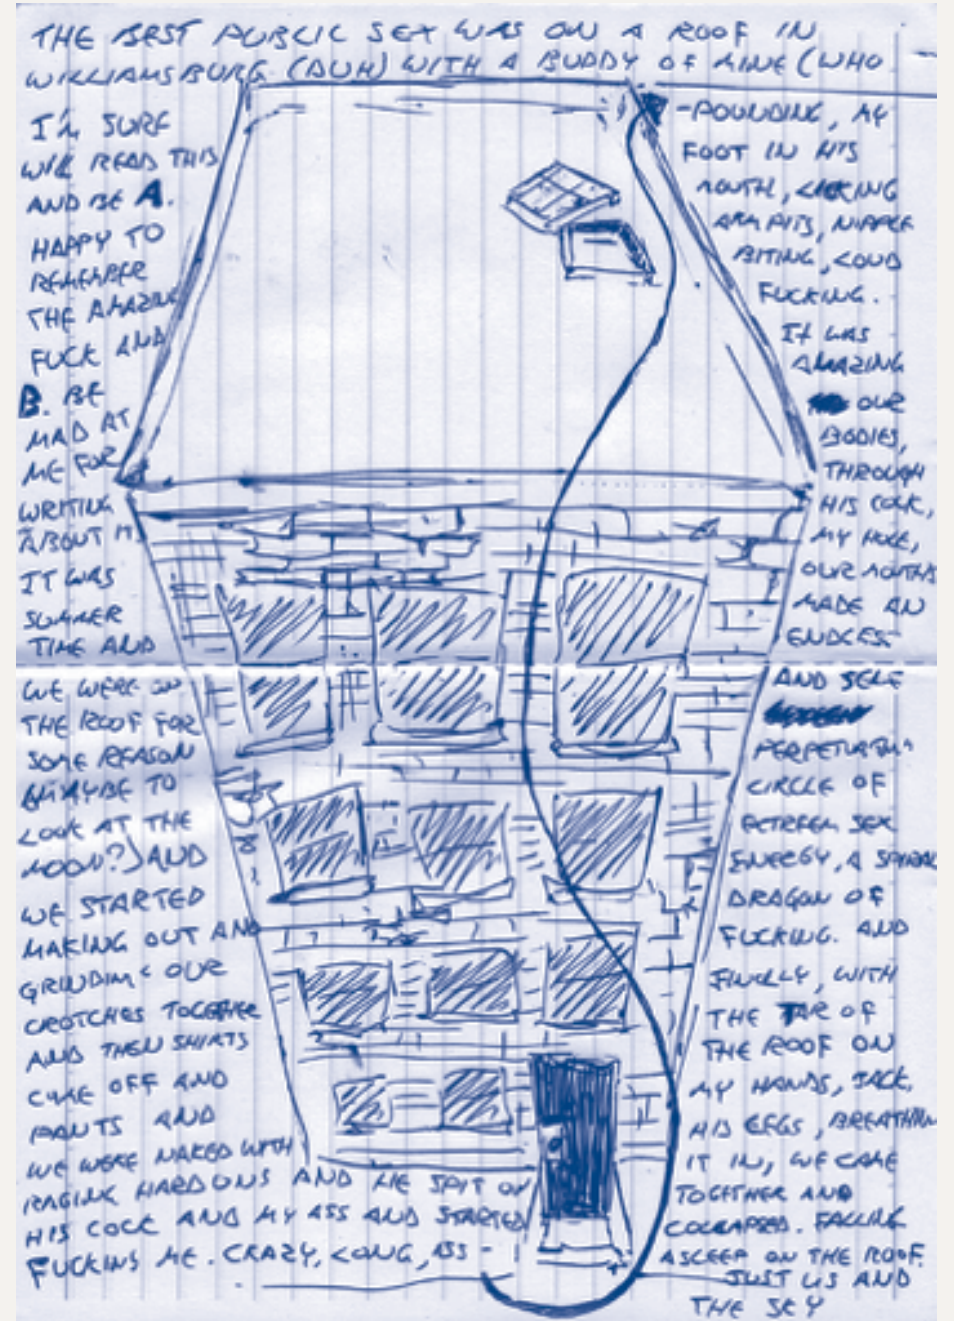 THE BEST PUBLIC SEX WAS ON A ROOF IN
WILLIAMSBURG (DUH) WITH A BUDDY OF MINE (WHO
I'M SURE
WILL READ THIS
AND BE A.
HAPPY TO
REMEMBER
THE AMAZING
FUCK AND
B. BE
MAD AT
ME FOR
WRITING
ABOUT IT
IT WAS
SUMMER
TIME AND
WE WERE ON
THE ROOF FOR
SOME REASON
(MAYBE TO
LOOK AT THE
MOON?) AND
WE STARTED
MAKING OUT AND
GRINDING OUR
CROTCHES TOGETHER
AND THEN SHIRTS
CAME OFF AND
PANTS AND
WE WERE NAKED WITH
RAGING HARDONS AND HE SPIT ON
HIS COCK AND MY ASS AND STARTED
FUCKING ME. CRAZY, LONG, ASS-
-POUNDING, MY
FOOT IN HIS
MOUTH, LICKING
ARM PITS, NIPPLE
BITING, LOUD
FUCKING.
It WAS
AMAZING
OUR
BODIES,
THROUGH
HIS COCK,
MY HOLE,
OUR MOUTHS
MADE AN
ENDLESS
AND SELF
PERPETUATING
CIRCLE OF
SEX
ENERGY, A SPIRAL
DRAGON OF
FUCKING. AND
FINALLY, WITH
THE TAR OF
THE ROOF ON
MY HANDS, BACK,
HIS LEGS, BREATHING
IT IN, WE CAME
TOGETHER AND
COLLAPSED. FALLING
ASLEEP ON THE ROOF.
JUST US AND
THE SKY